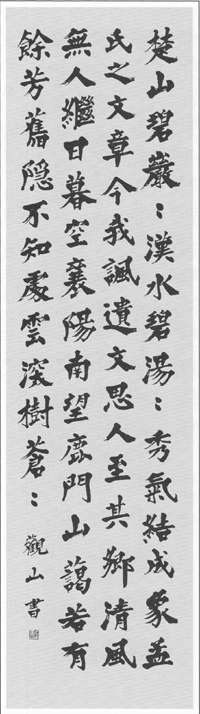 楚山碧巖：漢水碧湯：秀氣結成象孟
氏之文章今我諷遺文思人至其鄉清風
無人繼日暮空襄陽南望鹿門山藹若有
餘芳舊隠不知處雲深樹蒼：
觀山書